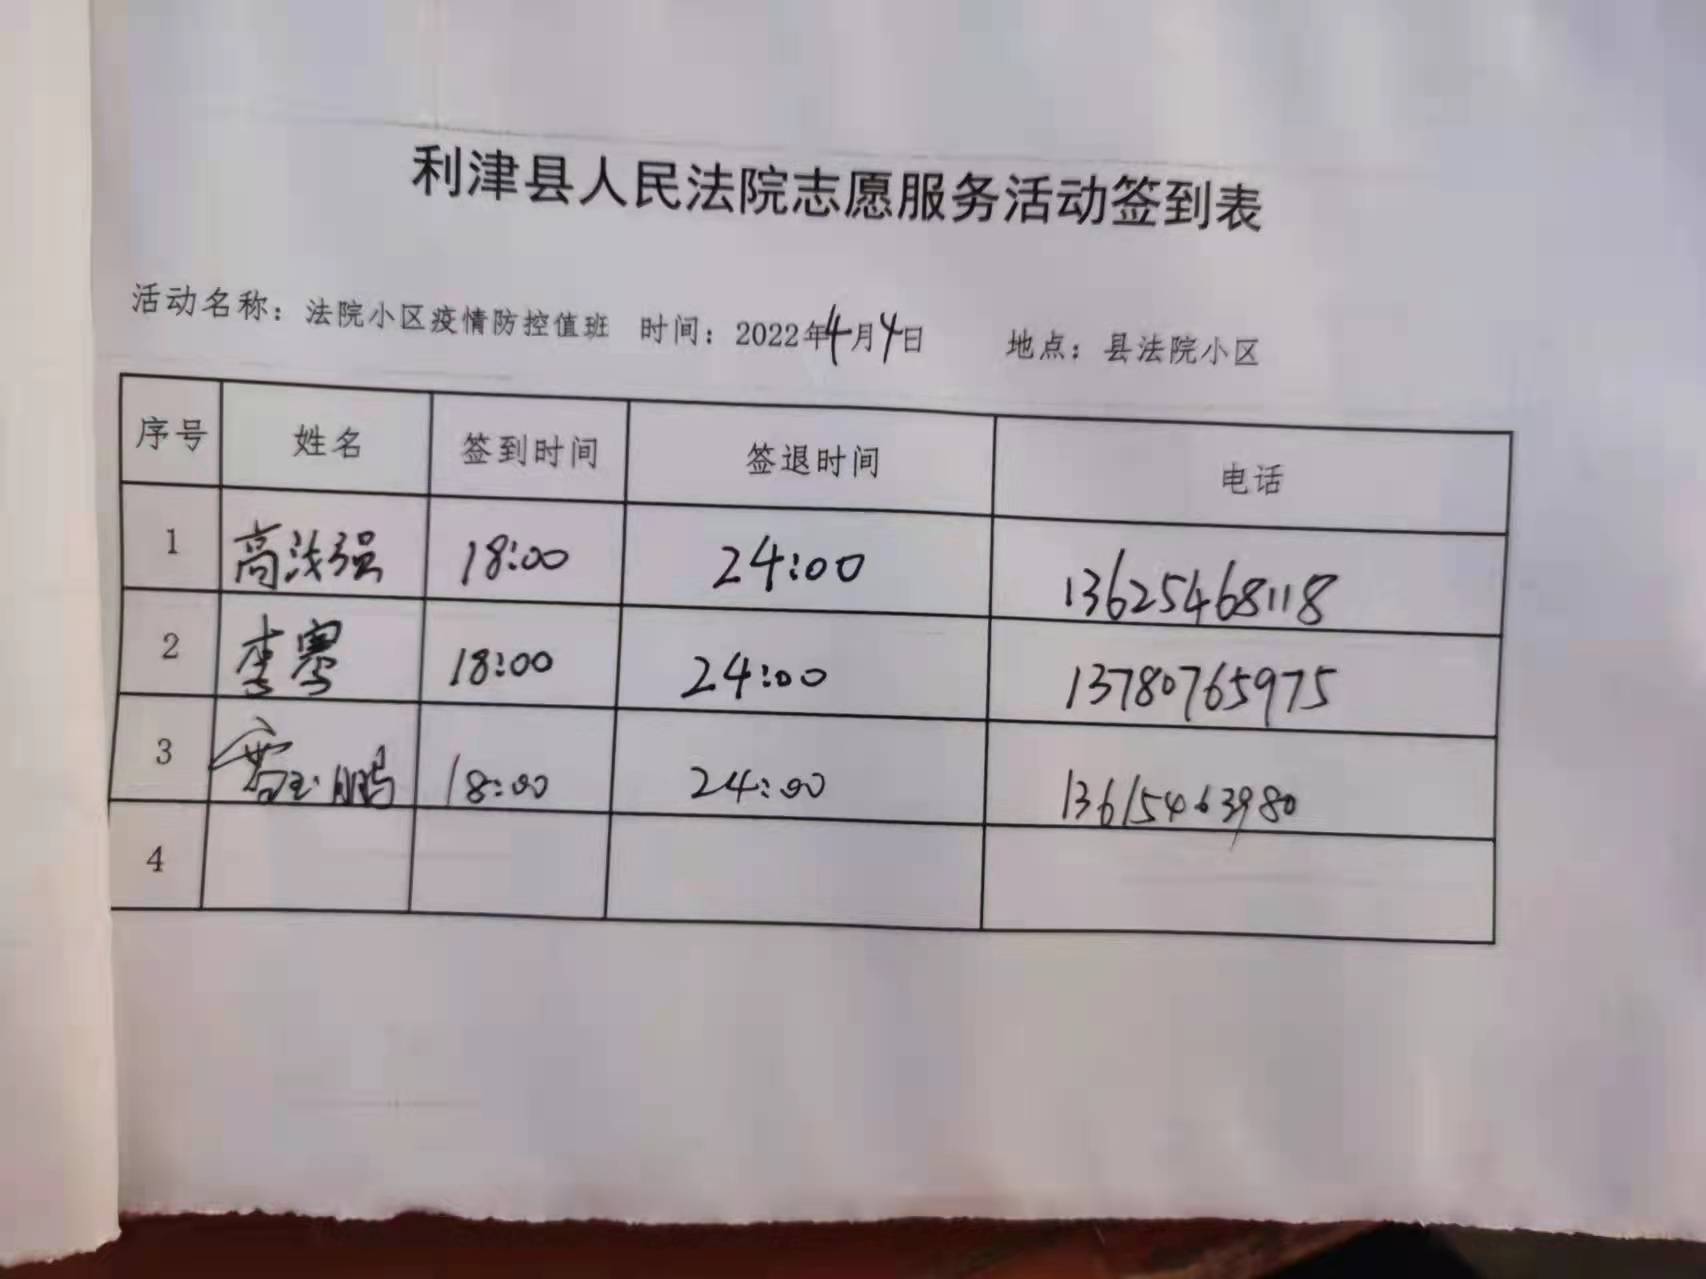 利津县人民法院志愿服务活动签到表
活动名称：法院小区疫情防控值班 时间：2022年4月4日 地点：县法院小区
序号 姓名 签到时间 签退时间 电话
1 高洪强 18:00 24:00 13625468118
2 李骞 18:00 24:00 13780765975
3 18:00 24:00 13615463980
4